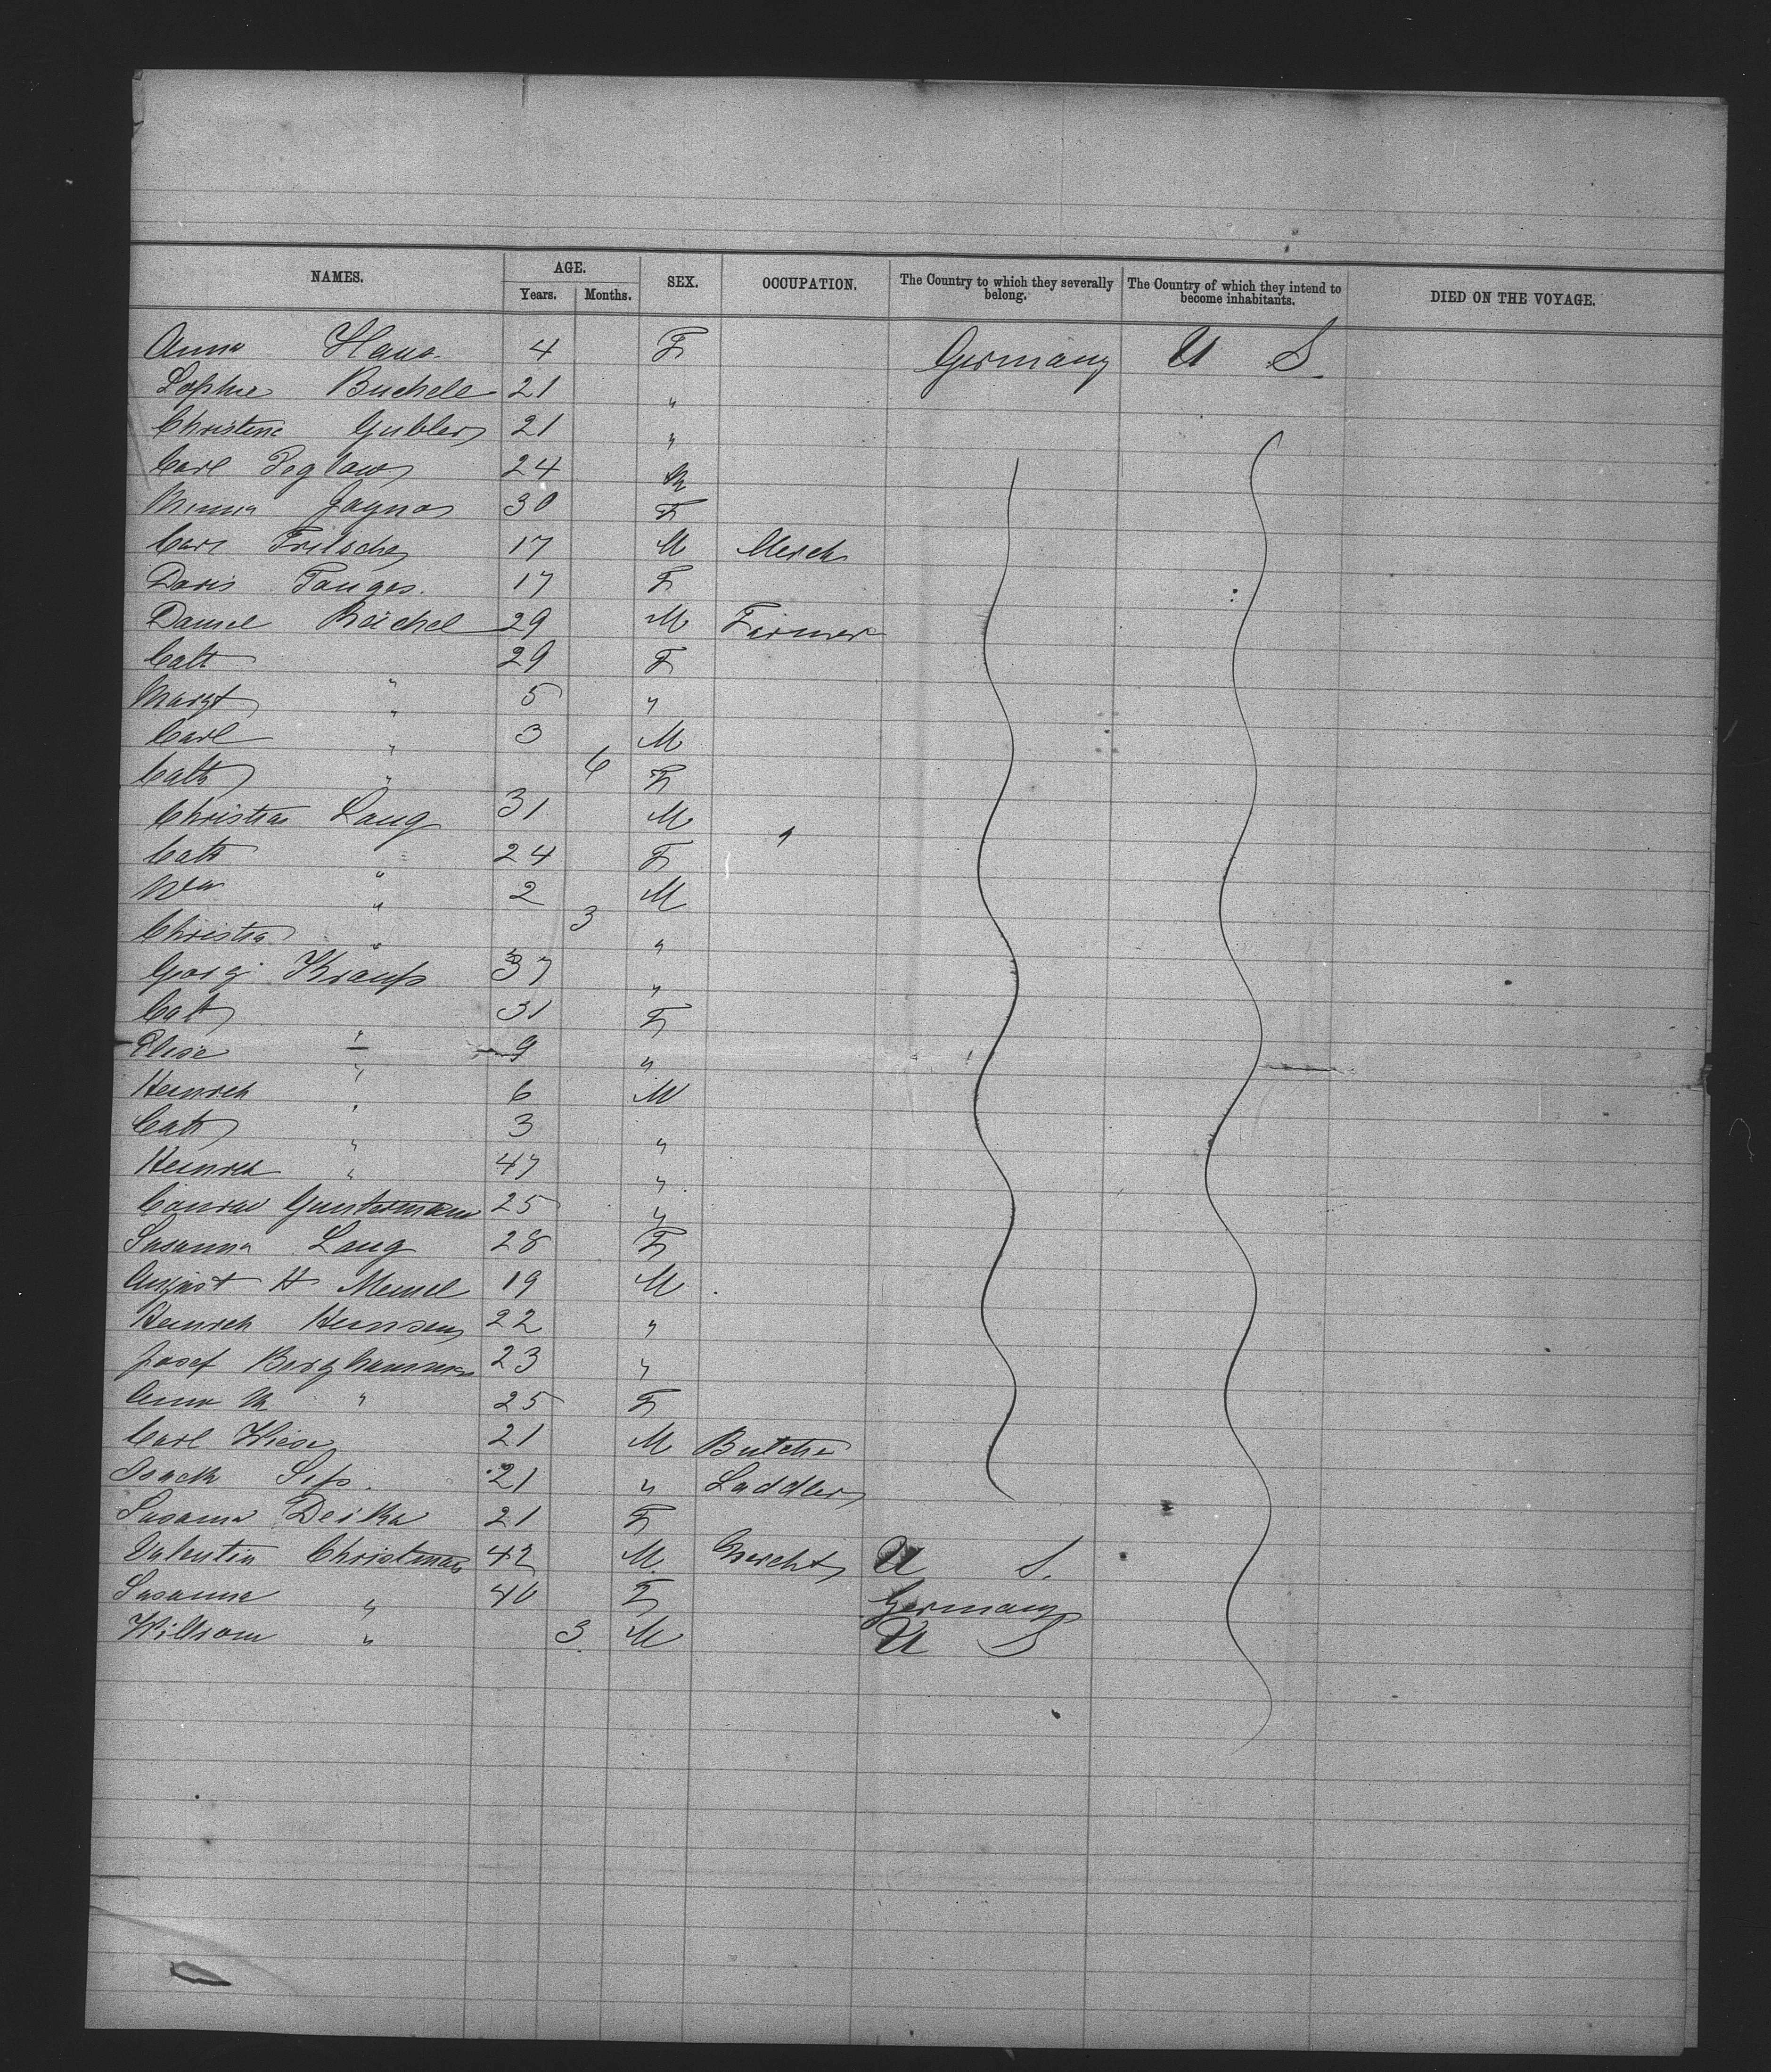 NAMES. AGE. Years. Months. SEX. OCCUPATION. The Country to which they severally belong. The Country of which they intend to become inhabitants. DIED ON THE VOYAGE.
Anna 4 F Germany U S
Sophie Buchele 21 "
Christine Gubler 21 "
Carl 24 M
Minna 30 F
Carl Fritsche 17 M Merch
Doris Tanges. 17 F
Daniel Reichel 29 M Farmer
Cath " 29 F
Margt " 5 "
Carl " 3 M
Cath " 6 F
Christian Lang 31 M "
Cath " 24 F
Wm " 2 M
Christian " 3 "
Georg Krauss 37 "
Cath " 31 F
Elise " 9 "
Heinrich " 6 M
Cath " 3 "
Heinrich " 47 "
Conrad Guntermann 25 "
Susanna Lang 28 F
August H Meusel 19 M
Heinrich 22 "
Josef Berghammer 23 "
Anna M " 25 F
Carl Wiese 21 M Butcher
21 " Saddler
Susanna Deika 21 F
Valentin Christman 42 M Mercht U S.
Susanna " 40 F Germany
William " 3 M U S